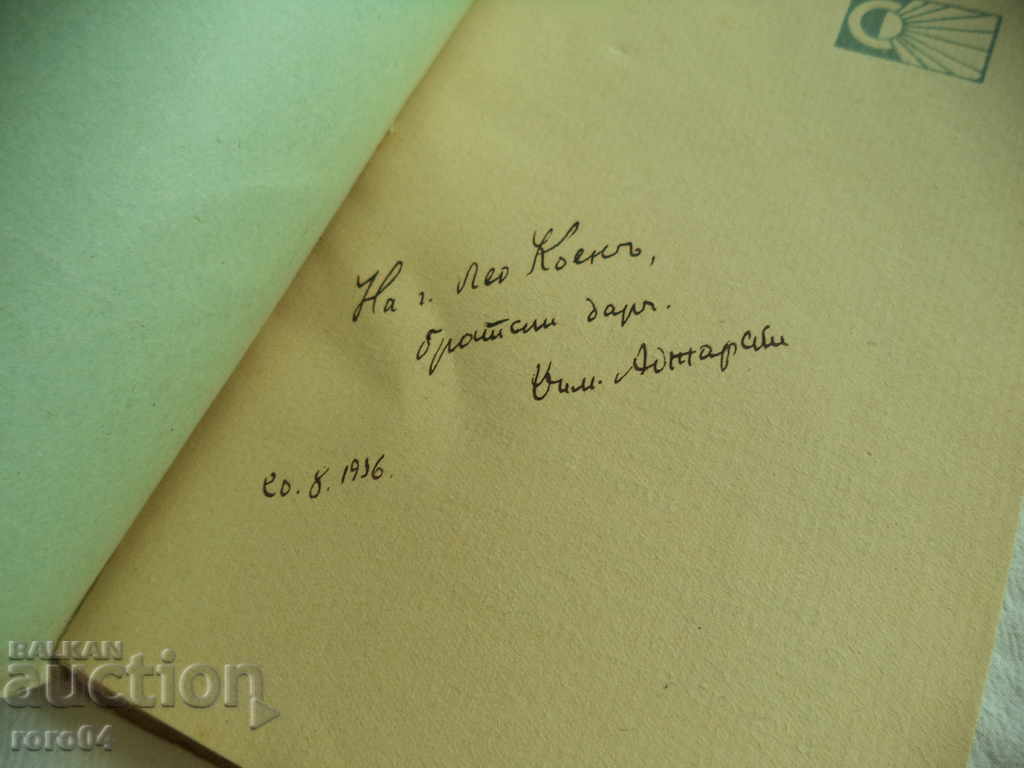 На г. Лео Коенъ,
братски даръ.
Вим. Аджарски
20.8.1936.
BALKAN
auction
roro04